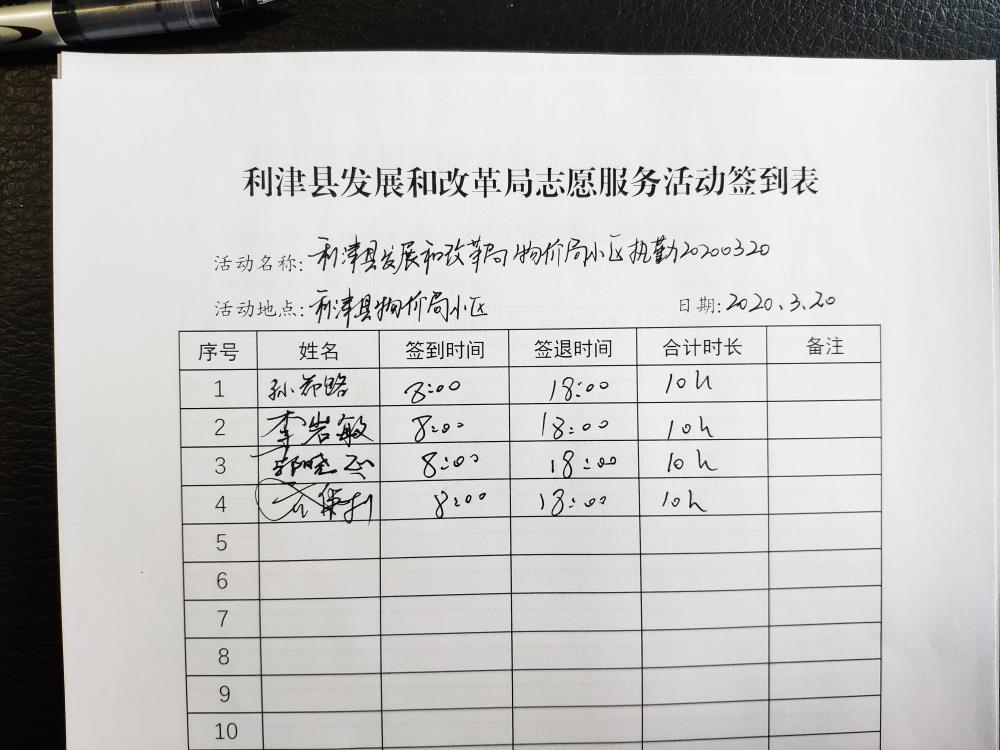 利津县发展和改革局志愿服务活动签到表
活动名称: 利津县发展和改革局物价局小区执勤20200320
活动地点: 利津县物价局小区 日期: 2020.3.20
序号 姓名 签到时间 签退时间 合计时长 备注
1 8:00 18:00 10h
2 李岩敏 8:00 18:00 10h
3 郭晓 8:00 18:00 10h
4 8:00 18:00 10h
5
6
7
8
9
10